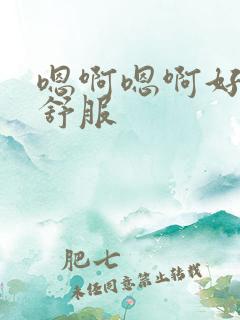 嗯啊嗯啊好
舒服
肥七
未经同意禁止转载